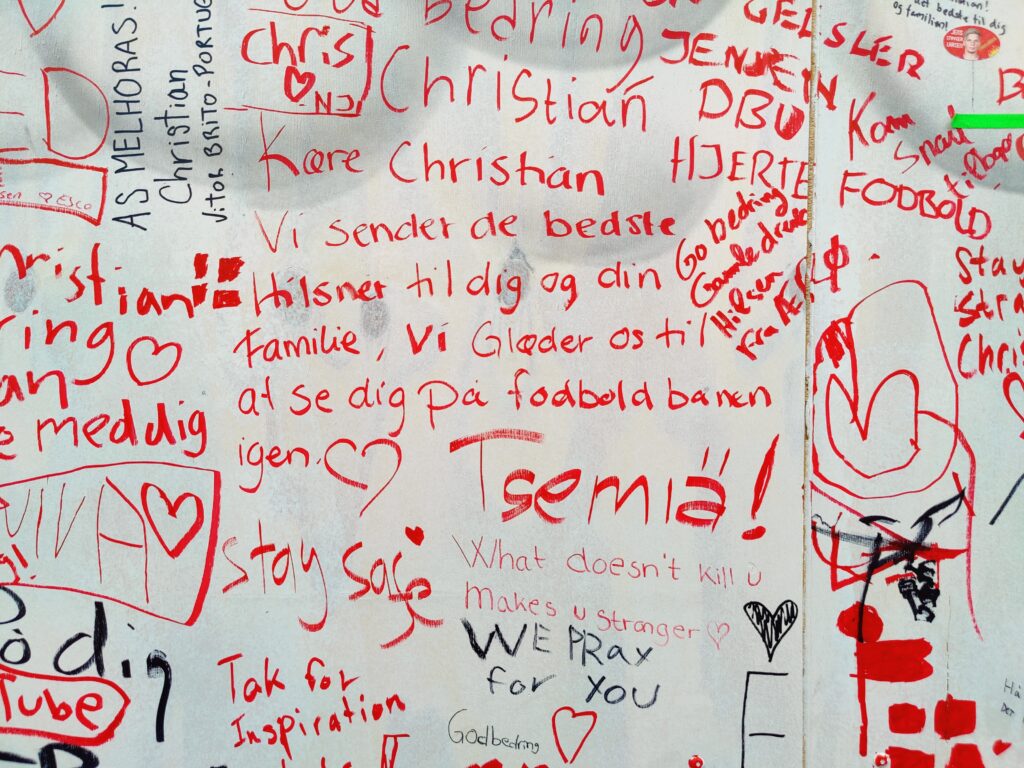 bedring
Chris
Christian
Kære Christian
Vi sender de bedste
Hilsner til dig og din
Familie, Vi Glæder os til
at se dig på fodbold banen
igen.
AS MELHORAS!
Christian
VitOR BRITO-PORTU
JENSEN
DBU
HJERTE
Go bedring
Gamle dreng
Hilsen
fra ÆRØ
GELSLER
det bedste til dig
og familien!
Kom
Snart
FODBOLD
Stay
Chris
ristian
ring
an
meddig
VIVA
dig
Tube
Esco
stay safe
Tsemiä!
What doesn't kill u
makes u stronger
WE PRay
for you
Tak for
Inspiration
Godbedring